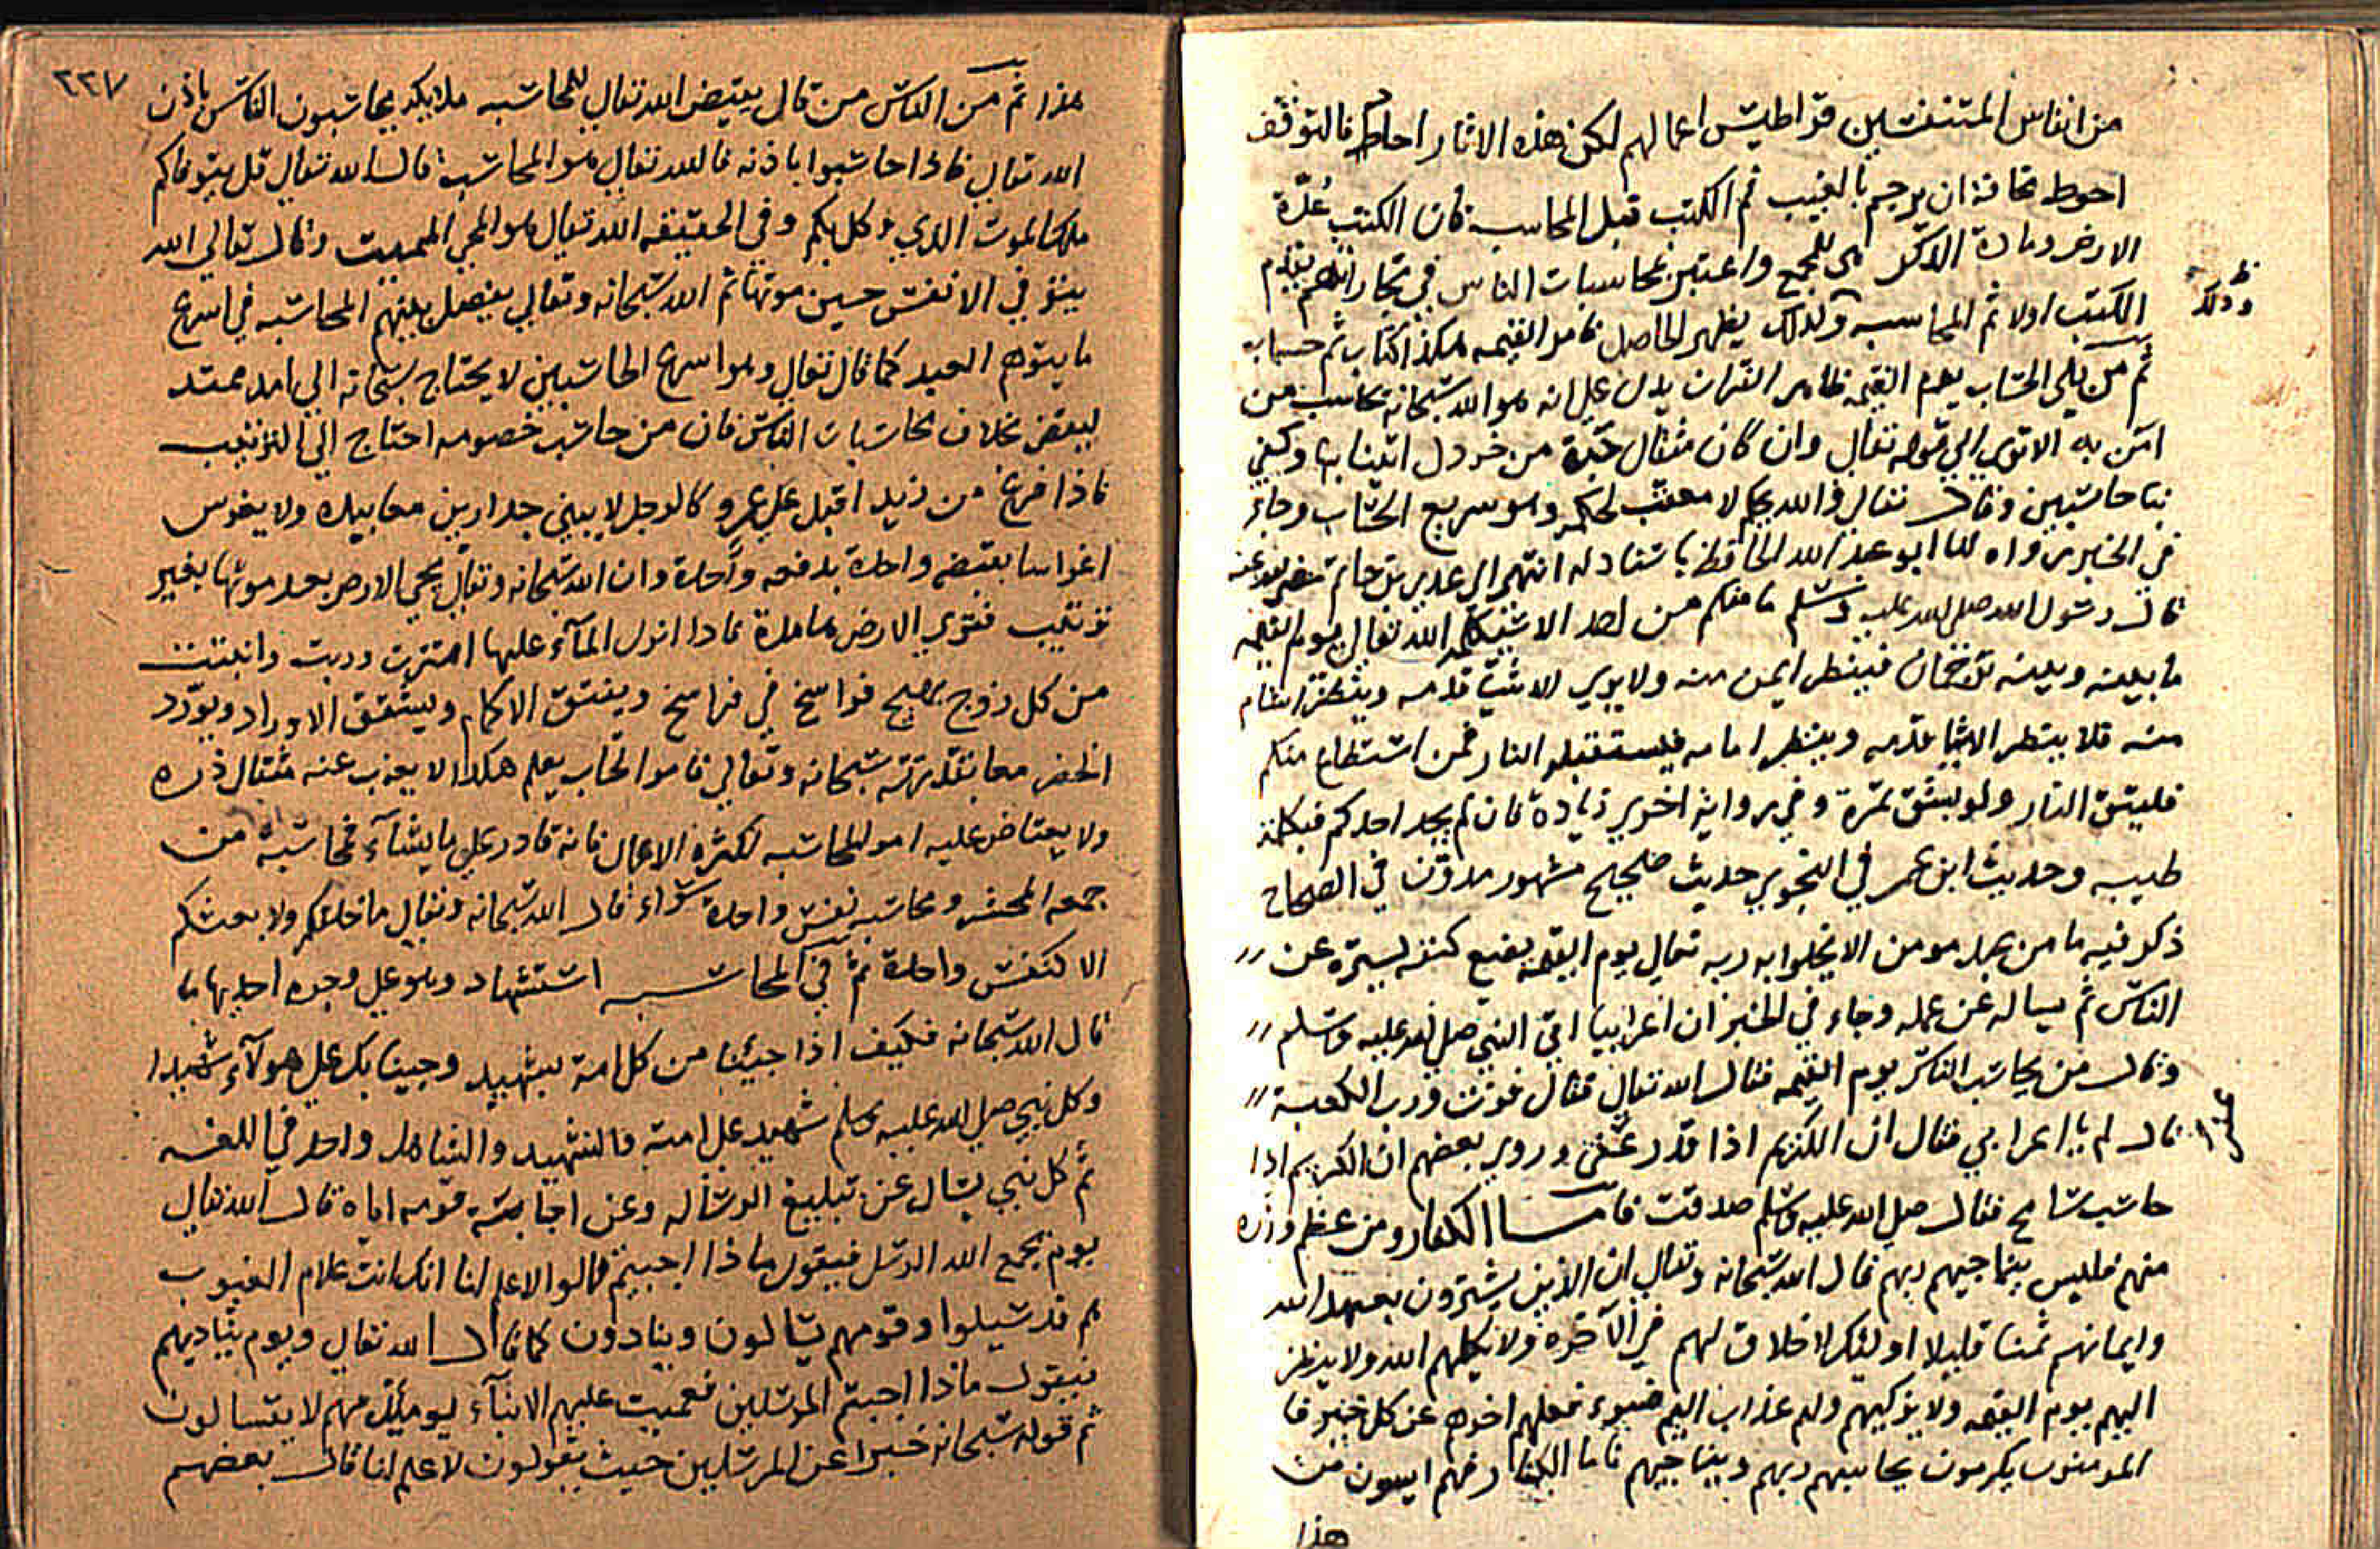 من انفاس المتنفسين قراطيس اعمالهم لكن هذه الاثار احاد فالتوقف
احوط مخافة ان يرجم بالغيب ثم الكتب قبل المحاسبة فان الكتب عدة
الارض ومادة الذكر هي للجمع واعتبر محاسبات الناس في تجاراتهم بتقديم
الكتب اولا ثم المحاسبه وبذلك يظهر الحاصل فامر القيمه هكذا كتاب ثم حساب
وذلك
ثم من يلي الحساب يوم القيمه ظاهر القران يدل على انه هو الله سبحانه يحاسب من
امن به الا ترى الى قوله تعالى وان كان مثقال حبة من خردل اتينا بها وكفى
بنا حاسبين وقال تعالى والله يحكم لا معقب لحكمه وهو سريع الحساب وجاء
في الخبر رواه لنا ابو عبد الله الحافظ باسناد له انتهى الى عدي بن حاتم رضي الله عنه
قال رسول الله صلى الله عليه وسلم ما منكم من احد الا سيكلمه الله تعالى يوم القيمه
ما بينه وبينه ترجمان فينظر ايمن منه ولا يرى الا شيئا قدمه وينظر اشام
منه فلا ينظر الا شيا قدمه وينظر امامه فيستقبله النار فمن استطاع منكم
فليتق النار ولو بشق تمرة وفي رواية اخرى زيادة فان لم يجد احدكم فبكلمة
طيبه وحديث ابن عمر في النجوى حديث صحيح مشهور مدون في الصحاح
ذكر فيه ما من عبد مومن الا يخلوا به ربه تعالى يوم القيمه يضع كنفه ليستره عن
الناس ثم يساله عن عمله وجاء في الخبر ان اعرابيا اتى النبي صلى الله عليه وسلم
وقال من يحاسب الناس يوم القيمه فقال الله تعالى فقال فزت ورب الكعبة
قال لم يا اعرابي فقال ان الكريم اذا قدر عفى وروى بعضهم ان الكريم اذا
حاسب سامح فقال صلى الله عليه وسلم صدقت فاما الكفار ومن عظم وزره
منهم فليس يناجيهم ربهم قال الله سبحانه وتعالى ان الذين يشترون بعهد الله
وايمانهم ثمنا قليلا اولئك لا خلاق لهم في الآخرة ولا يكلمهم الله ولا ينظر
اليهم يوم القيمه ولا يزكيهم ولهم عذاب اليم عن كل خير فا
المومنون يكرمون يحاسبهم ربهم ويناجيهم فاما الكفار فهم ايسون من
هذا
٢٢٧
هذا ثم من الناس من قال يقيض الله تعالى للمحاسبه ملايكة يحاسبون الناس باذن
الله تعالى فاذا حاسبوا باذنه فالله تعالى هو المحاسب قال الله تعالى قل يتوفاكم
ملك الموت الذي وكل بكم وفي الحقيقه الله تعالى هو المحي المميت وقال تعالى الله
يتوفى الانفس حين موتها ثم الله سبحانه وتعالى يفصل بينهم المحاسبه في اسرع
ما يتوهم العبيد كما قال تعالى وهو اسرع الحاسبين لا يحتاج سبحانه الى امد ممتد
ليعقد بخلاف محاسبات الناس فان من حاسب خصومه احتاج الى الترتيب
فاذا فرغ من زيد اقبل على عمرو كالرجل لا يبني جدارين معا بيده ولا يغرس
اغراسا بقبضه واحدة بدفعه واحدة وان الله سبحانه وتعالى يحي الارض بعد موتها بغير
ترتيب فترى الارض هامدة فاذا انزل المآء عليها اهتزت وربت وانبتت
من كل زوج بهيج فراسخ في فراسخ ويفتق الاكمام ويشقق الاوراد ويورد
الخضر معا بقدرته سبحانه وتعالى فامر الحساب يعلم هكذا لا يعزب عنه مثقال ذره
ولا يعتاض عليه امر المحاسبه لكثرة الاعمال فانه قادر على ما يشآء فمحاسبة من
جمعه المحشر ومحاسبة نفس واحدة سواء قال الله سبحانه وتعالى ما خلقكم ولا بعثكم
الا كنفس واحدة ثم في المحاسبه استشهاد وهو على وجوه احديها ما
قال الله سبحانه فكيف اذا جيئنا من كل امة بشهيد وجينا بك على هولآء شهيدا
وكل نبي صلى الله عليه وسلم شهيد على امته فالشهيد والشاهد واحد في اللغه
ثم كل نبي يسال عن تبليغ الرساله وعن اجابته قومه اياه قال الله تعالى
يوم يجمع الله الرسل فيقول ماذا اجبتم قالوا لا علم لنا انك انت علام الغيوب
هم قد سيلوا وقومهم يسالون وينادون كما قال الله تعالى ويوم يناديهم
فيقول ماذا اجبتم المرسلين فعميت عليهم الانبآء يومئذ فهم لا يتسالون
ثم قوله سبحانه خبرا عن المرسلين حيث يقولون لا علم لنا قال بعضهم